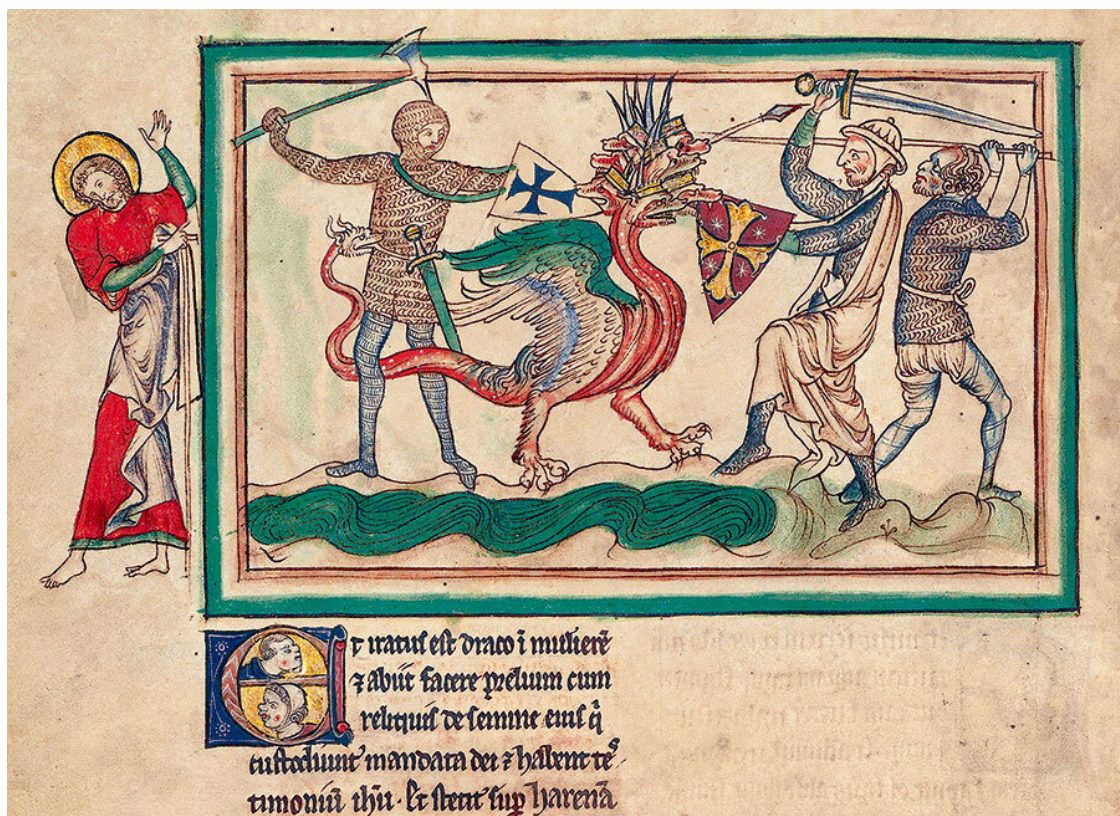 Et iratus est draco ī mulierē
⁊ abiit facere prelium cum
reliquis de semine eius qͥ
custodiunt mandata dei ⁊ habent teˢ
timoniū ihū. Et stetit suꝑ harenā